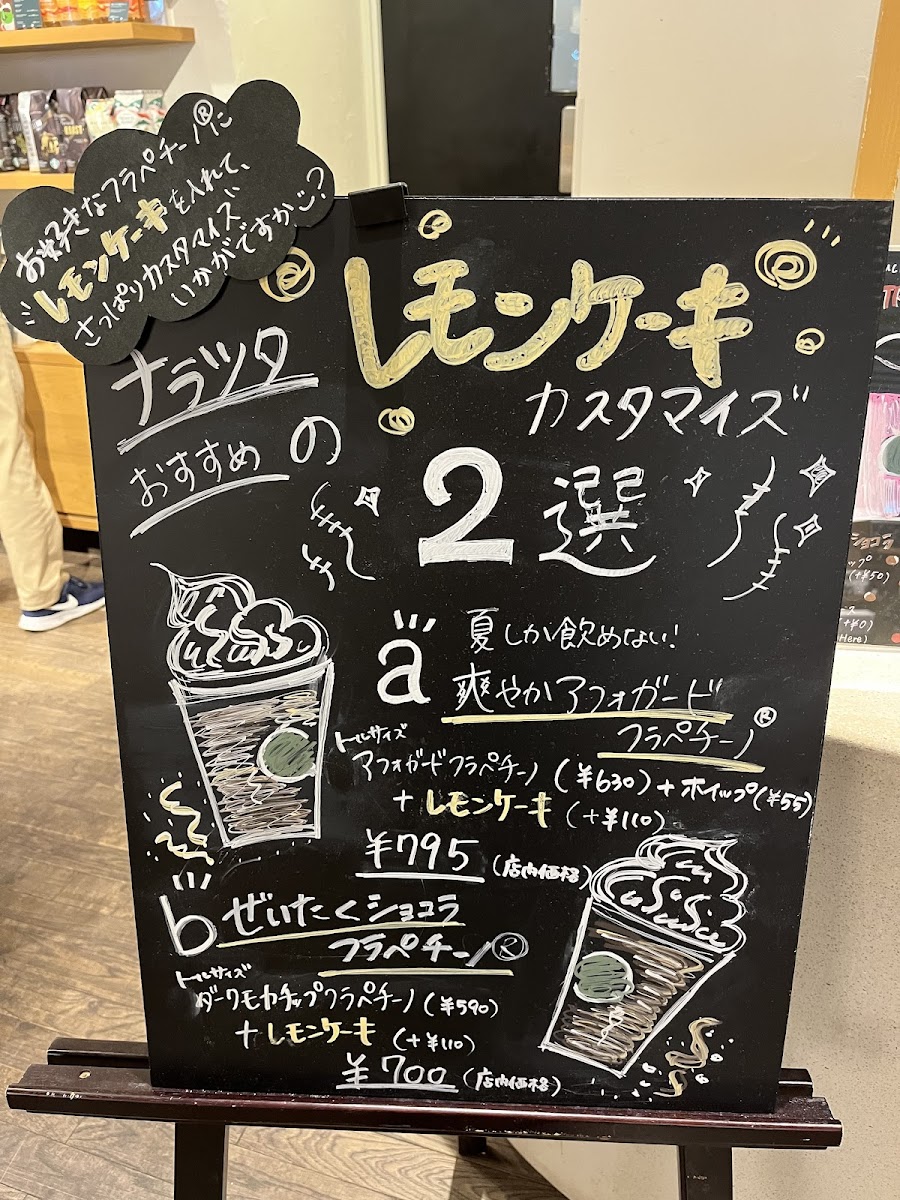 お好きなフラペチーノ®に
レモンケーキを入れて、
さっぱりカスタマイズ
いかがですか?
レモンケーキ
カスタマイズ
ナラツタ
おすすめの
2選
a 夏しか飲めない!
爽やかアフォガード
フラペチーノ®
トールサイズ
アフォガードフラペチーノ (¥630) + ホイップ(¥55)
+ レモンケーキ (+¥110)
¥795 (店内価格)
b ぜいたくショコラ
フラペチーノ®
トールサイズ
ダークモカチップフラペチーノ (¥590)
+ レモンケーキ (+¥110)
¥700 (店内価格)
ショコラ
(+¥50)
(+¥0)
Here)